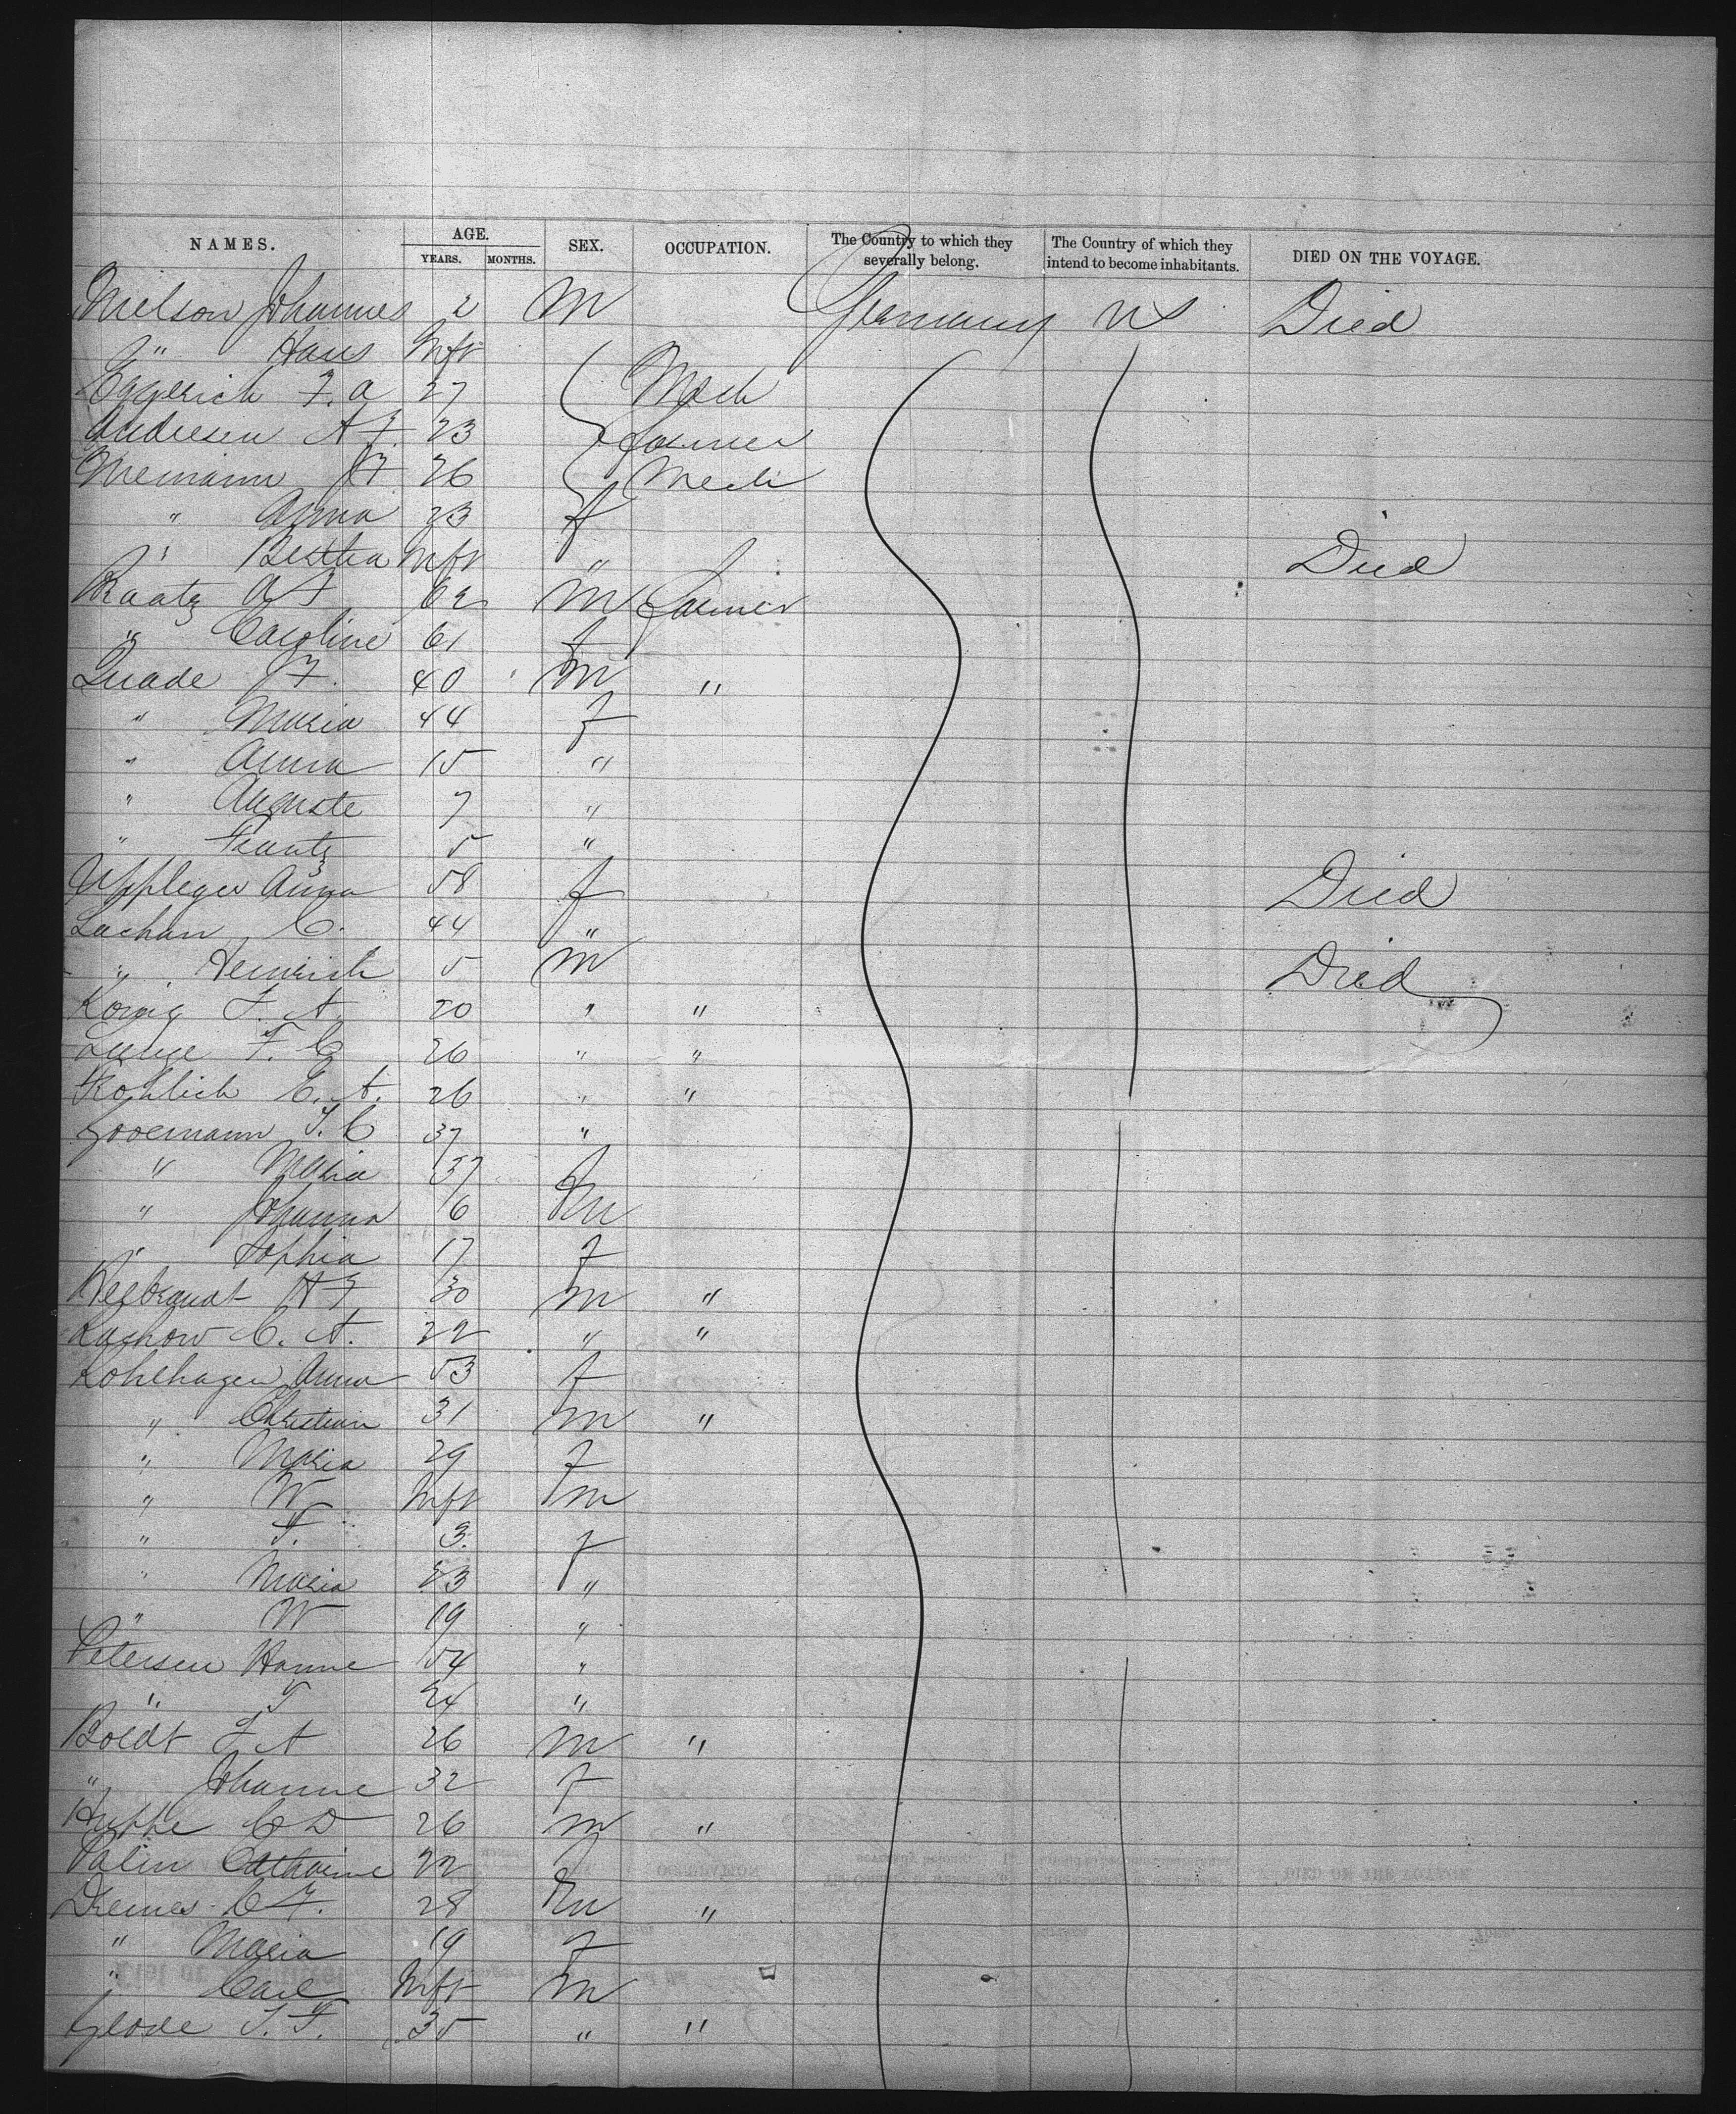 NAMES. AGE. YEARS. MONTHS. SEX. OCCUPATION. The Country to which they severally belong. The Country of which they intend to become inhabitants. DIED ON THE VOYAGE.
Nielson Johannes 2 M Germany US Died
" Hans Inft
Eggerich F. A 27 Mech
Andresen A F. 23 Farmer
Niemann J F 26 Mech
" Anna 23 f
" Bertha Inft " Died
Raatz A F 62 M Farmer
" Caroline 61 f
Quade J F. 40 M "
" Maria 44 f
" Anna 15 "
" Auguste 7 "
" Frantz 5 "
Uppleger Anna 58 f Died
Lachan C. 44 "
" Heinrich 5 M Died
König F. A. 20 " "
F. C 26 " "
Frohlich C. A. 26 " "
T. C 37 "
" Maria 37 f
" Johanna 6 m
" Sophia 17 f
A F 30 m "
C. A. 22 " "
Kohlhagen Anna 53 f
" Christian 31 m "
" Maria 29 f
" W Inft m
" F. 3. f
" Maria 23 "
" W 19 "
Petersen Hanne 54 "
" F 24 "
Boldt F A 26 m "
" Johanne 32 f
C D 26 m "
Palin Catharine 22 f
Driemes C F. 28 m "
" Maria 19 f
" Carl Inft m
Glode T. F. 35 " "